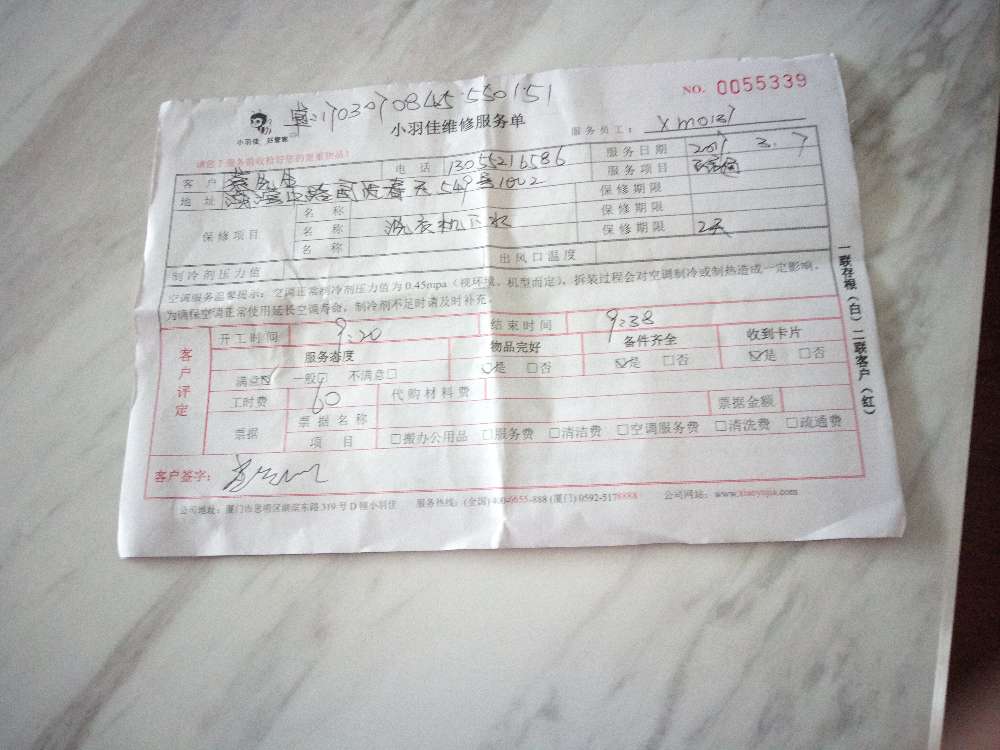 NO. 0055339
单:1703070845550151
小羽佳 好管家
小羽佳维修服务单
服务员工: XM0137
请您了服务前收检好您的贵重物品!
客 户 蔡先生 电 话 13055216586 服务日期 2017 3. 7
地 址 549 1002 服务项目
保修期限
保修项目 名 称 保修期限
名 称 洗衣机下水 保修期限 2天
名 称
制冷剂压力值 出风口温度
空调服务温馨提示:空调正常制冷剂压力值为0.45mpa(视环境、机型而定),拆装过程会对空调制冷或制热造成一定影响。
为确保空调正常使用延长空调寿命,制冷剂不足时请及时补充。
客户评定
开工时间 9:20 结束时间 9:38
服务态度 物品完好 备件齐全 收到卡片
满意☑ 一般□ 不满意□ ☑是 □否 ☑是 □否 ☑是 □否
工时费 60 代购材料费
票据 票据名称 票据金额
项 目 □搬办公用品 □服务费 □清洁费 □空调服务费 □清洗费 □疏通费
客户签字:
公司地址:厦门市思明区湖滨东路319号D幢小羽佳 服务热线:(全国)400-6655-888 (厦门)0592-5178888 公司网站:www.xiaoyujia.com
一联存根(白)二联客户(红)